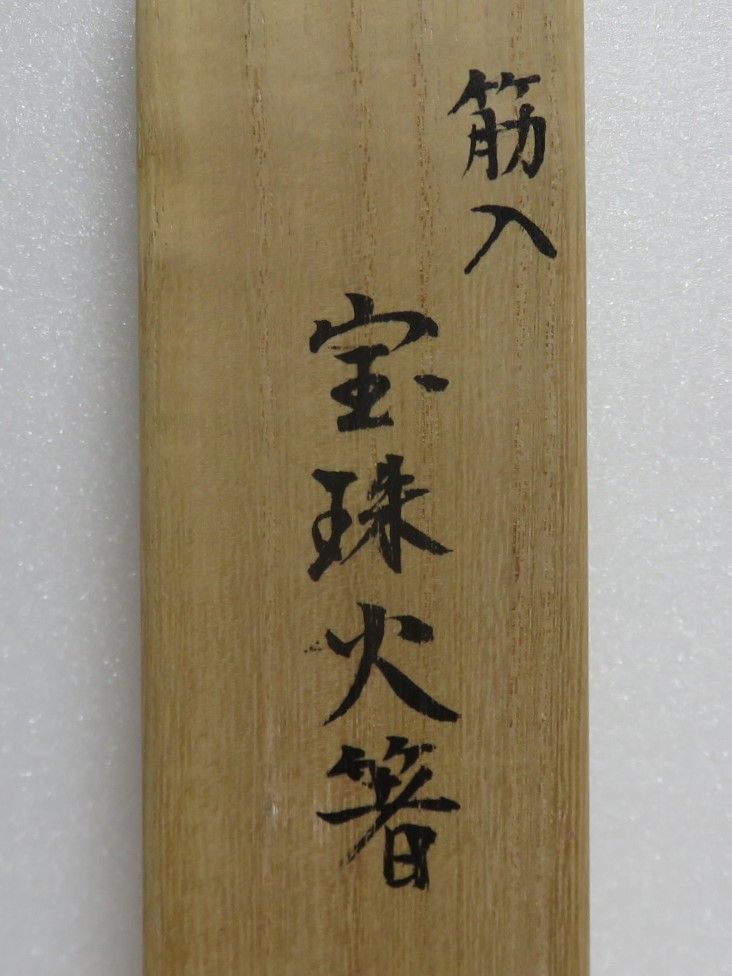 筋入
宝珠火箸